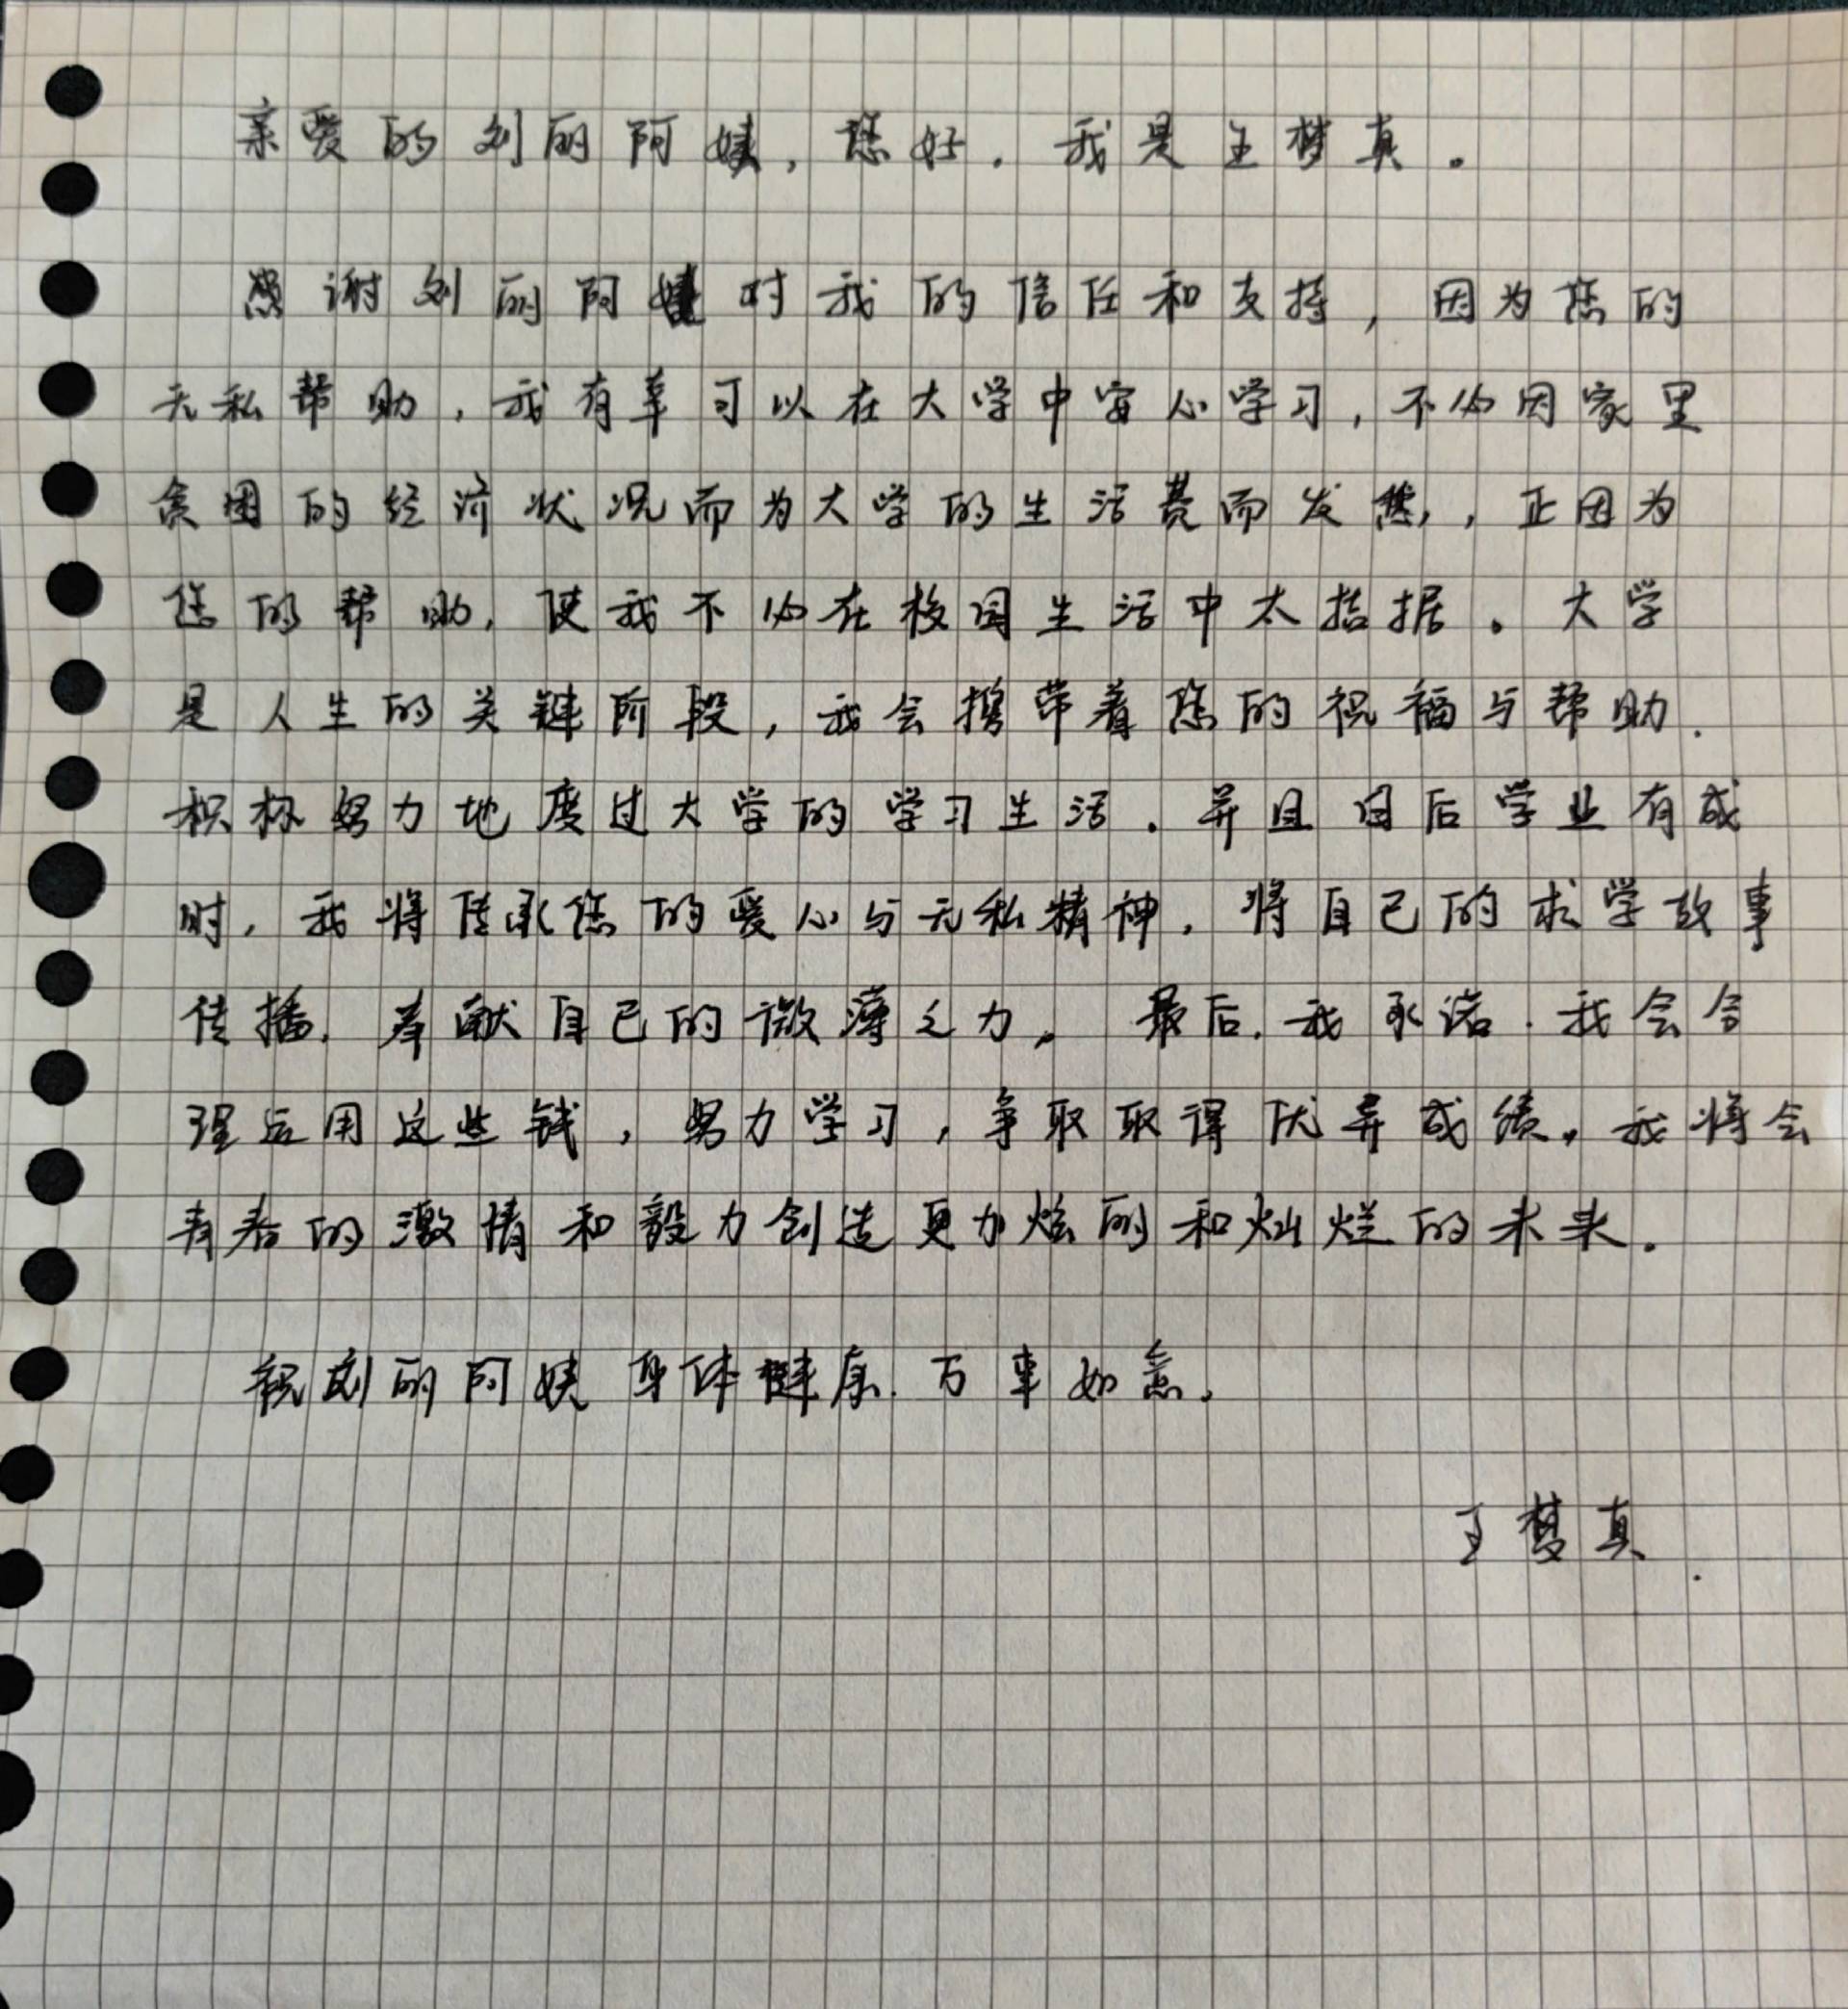 亲爱的刘丽阿姨，您好．我是王梦真．
感谢刘丽阿姨对我的信任和支持，因为您的
无私帮助，我有幸可以在大学中安心学习，不必因家里
贫困的经济状况而为大学的生活费而发愁，正因为
您的帮助，使我不必在校园生活中太拮据。大学
是人生的关键阶段，我会携带着您的祝福与帮助．
积极努力地度过大学的学习生活．并且日后学业有成
时，我将传承您的爱心与无私精神，将自己的求学故事
传播，奉献自己的微薄之力。最后，我承诺．我会合
理运用这些钱，努力学习，争取取得优异成绩。我将会
青春的激情和毅力创造更加炫丽和灿烂的未来．
祝刘丽阿姨身体健康．万事如意．
王梦真．